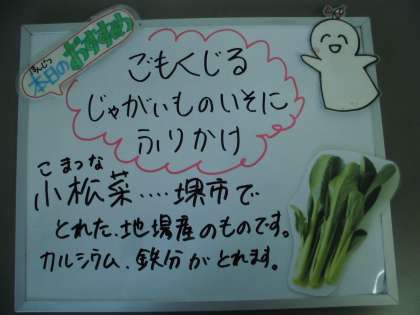 ほんじつ
本日のおすすめ
ごもくじる
じゃがいものいそに
ふりかけ
こまつな
小松菜‥‥堺市で
とれた、地場産のものです。
カルシウム、鉄分がとれます。